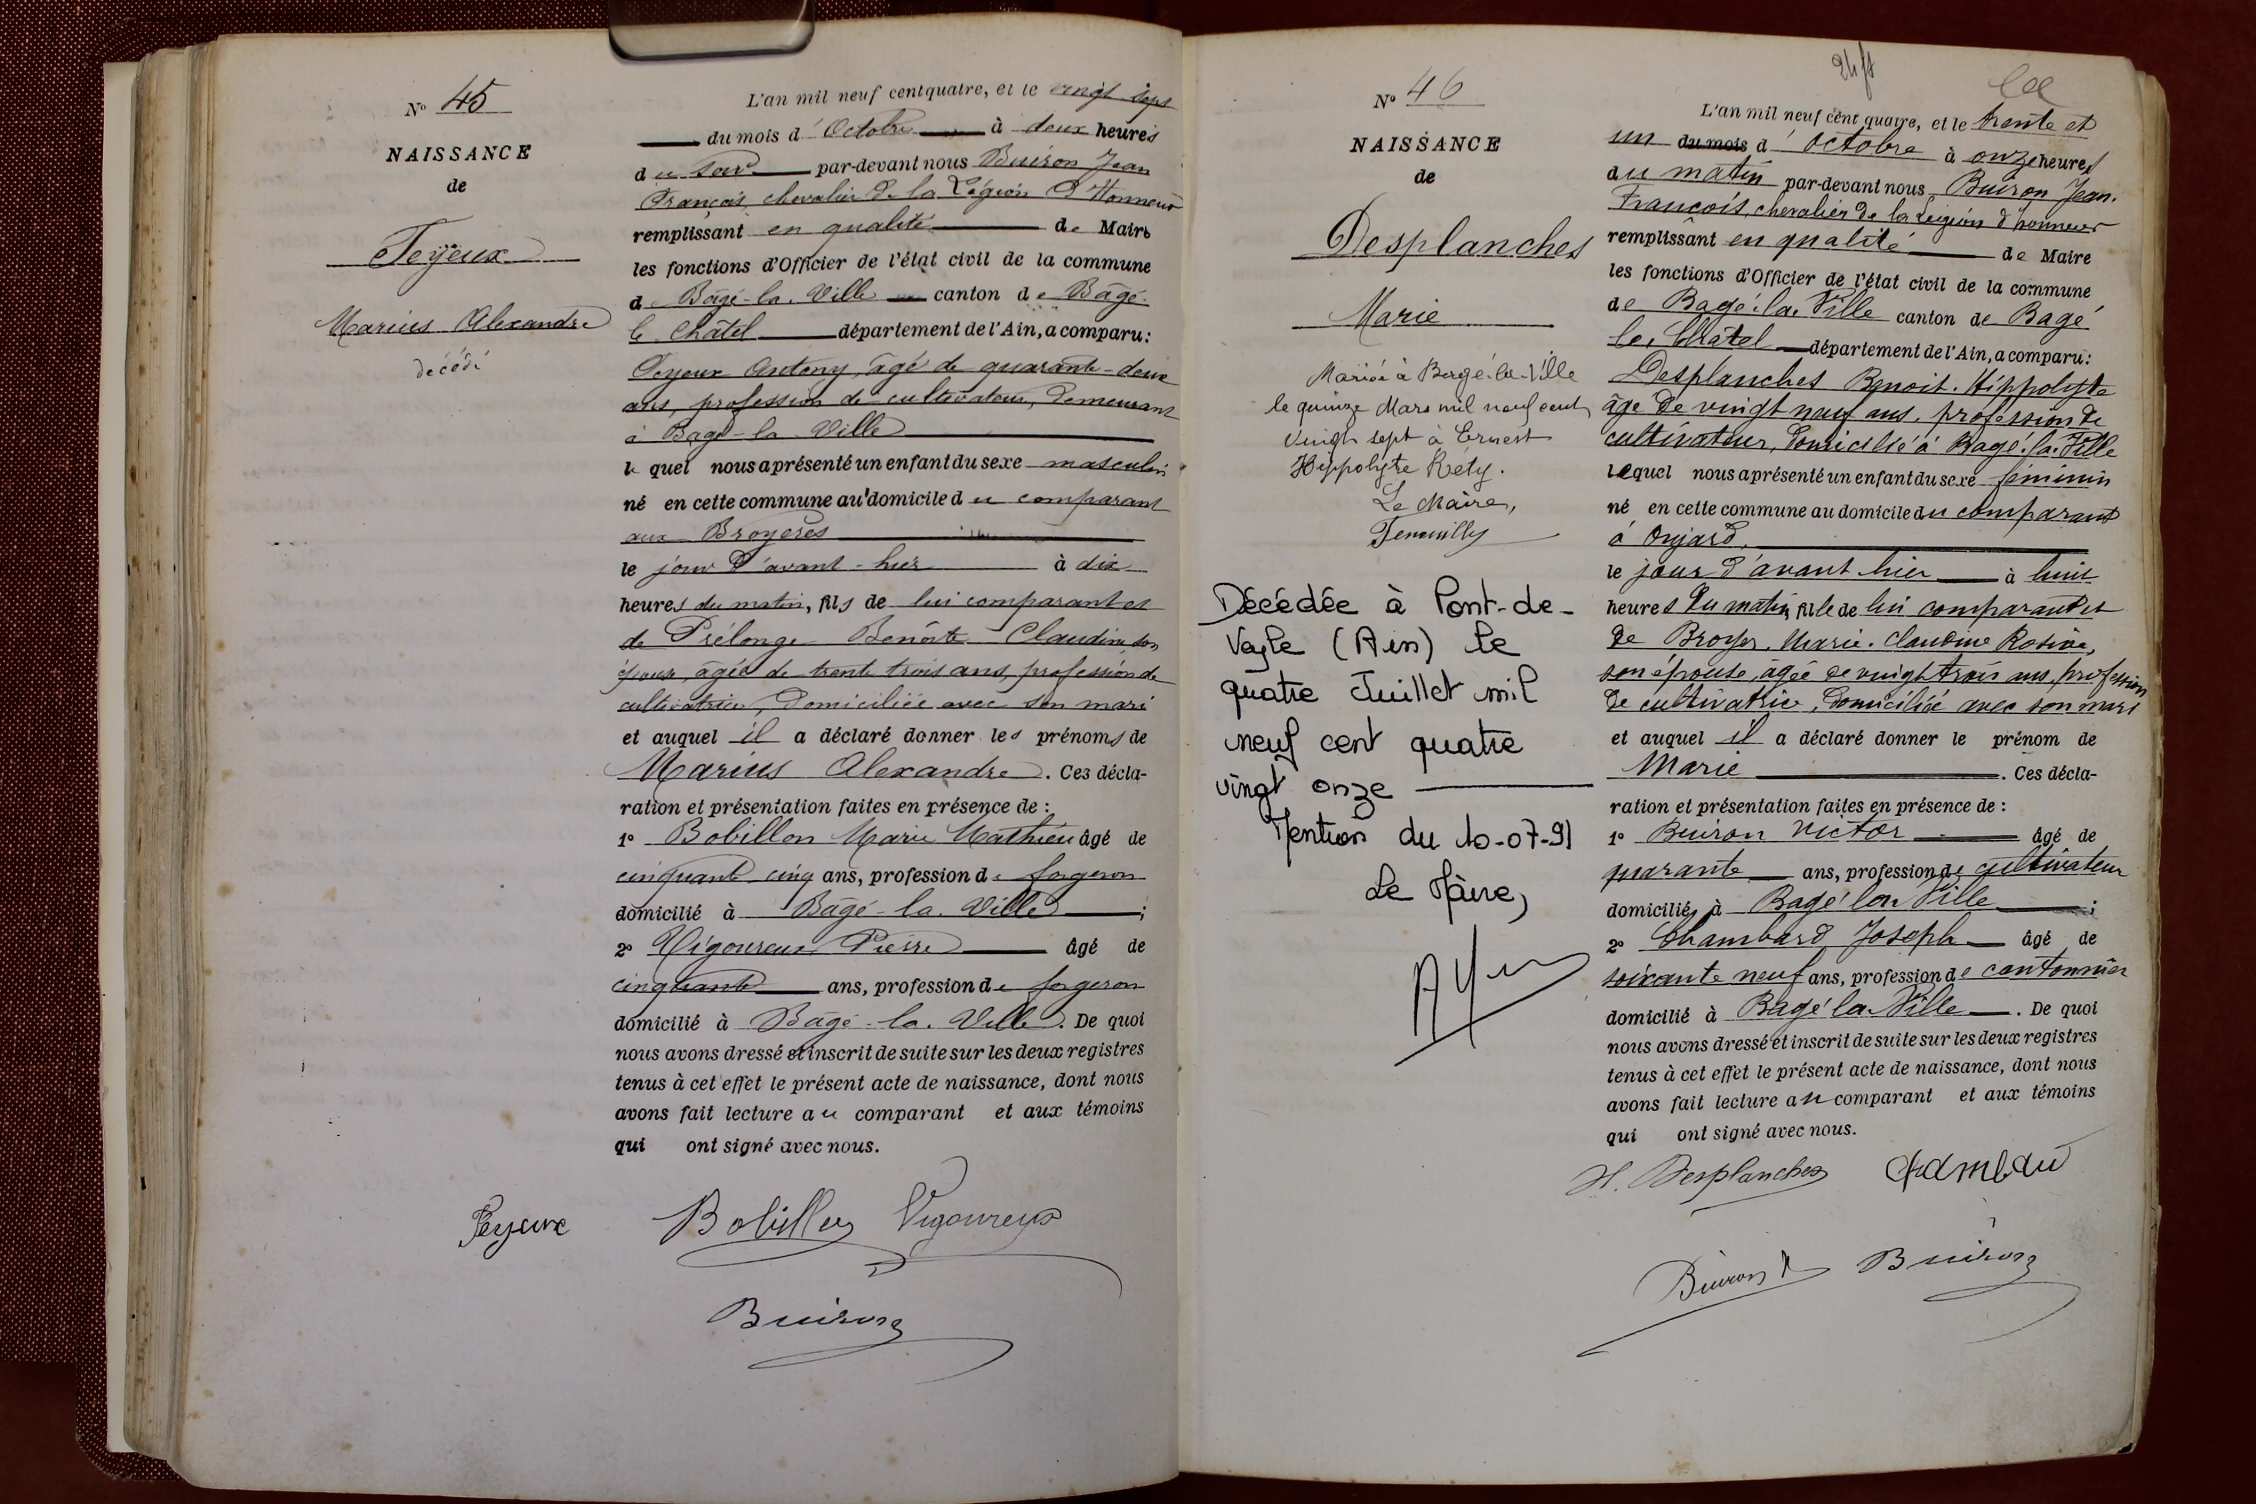 N° 45
NAISSANCE
de
Feyeux
Marius Alexandre
décédé
L'an mil neuf cent quatre, et le vingt sept
du mois d' Octobre à deux heures
du soir par-devant nous Buiron Jean
François, chevalier de la Légion d'Honneur
remplissant en qualité de Maire
les fonctions d'Officier de l'état civil de la commune
de Bâgé-la-Ville canton de Bâgé
le Châtel département de l'Ain, a comparu:
Feyeux Antony, âgé de quarante-deux
ans, profession de cultivateur, demeurant
à Bagé-la-Ville
le quel nous a présenté un enfant du sexe masculin
né en cette commune au domicile du comparant
aux Broyères
le jour d'avant-hier à dix
heures du matin, fils de lui comparant et
de Prélonge Benoîte Claudine, son
épouse, âgée de trente trois ans, profession de
cultivatrice, domiciliée avec son mari
et auquel il a déclaré donner les prénoms de
Marius Alexandre. Ces décla-
ration et présentation faites en présence de :
1° Bobillon Marie Mathieu âgé de
cinquante cinq ans, profession de forgeron
domicilié à Bâgé-la-Ville ;
2° Vigoureux Pierre âgé de
cinquante ans, profession de forgeron
domicilié à Bâgé-la-Ville. De quoi
nous avons dressé et inscrit de suite sur les deux registres
tenus à cet effet le présent acte de naissance, dont nous
avons fait lecture au comparant et aux témoins
qui ont signé avec nous.
Feyeux Bobillon Vigoureux
Buiron
N° 46
NAISSANCE
de
Desplanches
Marie
Mariée à Bagé-la-Ville
le quinze Mars mil neuf cent
vingt sept à Ernest
Hippolyte Réty.
Le Maire,
Décédée à Pont-de-
Veyle (Ain) le
quatre Juillet mil
neuf cent quatre
vingt onze
Mention du 10-07-91
Le Maire,
L'an mil neuf cent quatre, et le trente et
un du mois d' octobre à onze heures
du matin par-devant nous Buiron Jean.
François, chevalier de la Légion d'honneur
remplissant en qualité de Maire
les fonctions d'Officier de l'état civil de la commune
de Bagé-la-Ville canton de Bagé
le Châtel département de l'Ain, a comparu:
Desplanches Benoit. Hippolyte
âgé de vingt neuf ans, profession de
cultivateur, domicilié à Bagé-la-Ville
lequel nous a présenté un enfant du sexe féminin
né en cette commune au domicile du comparant
à Onjard,
le jour d'avant hier à huit
heures du matin, fille de lui comparant et
de Broyer Marie. Claudine Rosine,
son épouse, âgée de vingt trois ans, profession
de cultivatrice, domiciliée avec son mari
et auquel il a déclaré donner le prénom de
Marie. Ces décla-
ration et présentation faites en présence de :
1° Buiron Victor âgé de
quarante ans, profession de cultivateur
domicilié à Bagé la Ville ;
2° Chambard Joseph âgé de
soixante neuf ans, profession de cantonnier
domicilié à Bagé la Ville. De quoi
nous avons dressé et inscrit de suite sur les deux registres
tenus à cet effet le présent acte de naissance, dont nous
avons fait lecture au comparant et aux témoins
qui ont signé avec nous.
H. Desplanches
Buiron V Buiron